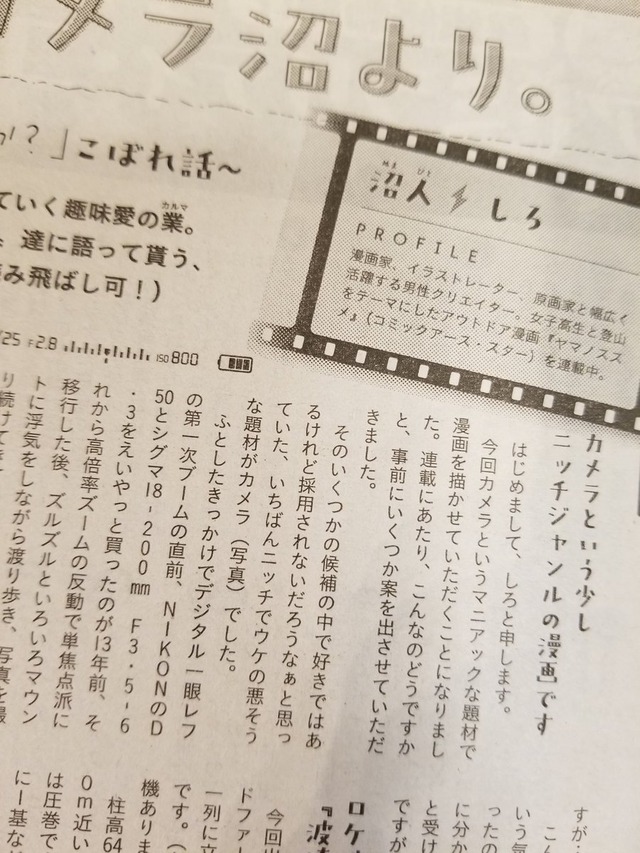 カメラ沼より。
」こぼれ話〜
ていく趣味愛の業。
カルマ
達に語って貰う、
み飛ばし可！）
/25 F2.8 ISO 800
沼人 しろ
PROFILE
漫画家、イラストレーター、原画家と幅広く
活躍する男性クリエイター。女子高生と登山
をテーマにしたアウトドア漫画『ヤマノスス
メ』（コミックアース・スター）を連載中。
カメラという少し
ニッチジャンルの漫画です
はじめまして、しろと申します。
今回カメラというマニアックな題材で
漫画を描かせていただくことになりまし
た。連載にあたり、こんなのどうですか
と、事前にいくつか案を出させていただ
きました。
そのいくつかの候補の中で好きではあ
るけれど採用されないだろうなぁと思っ
ていた、いちばんニッチでウケの悪そう
な題材がカメラ（写真）でした。
ふとしたきっかけでデジタル一眼レフ
の第一次ブームの直前、NIKONのD
50とシグマ18-200㎜ F3.5-6
.3をえいやっと買ったのが13年前、そ
れから高倍率ズームの反動で単焦点派に
移行した後、ズルズルといろいろマウン
トに浮気をしながら渡り歩き、写真を撮
り続けてき
すが
こん
いう気
ったの
に分か
と受け
ですが
ロケ
『波
今回
ドファ
一列に立
です。
機あり
柱高64
0m近い
は圧巻で
に一基な